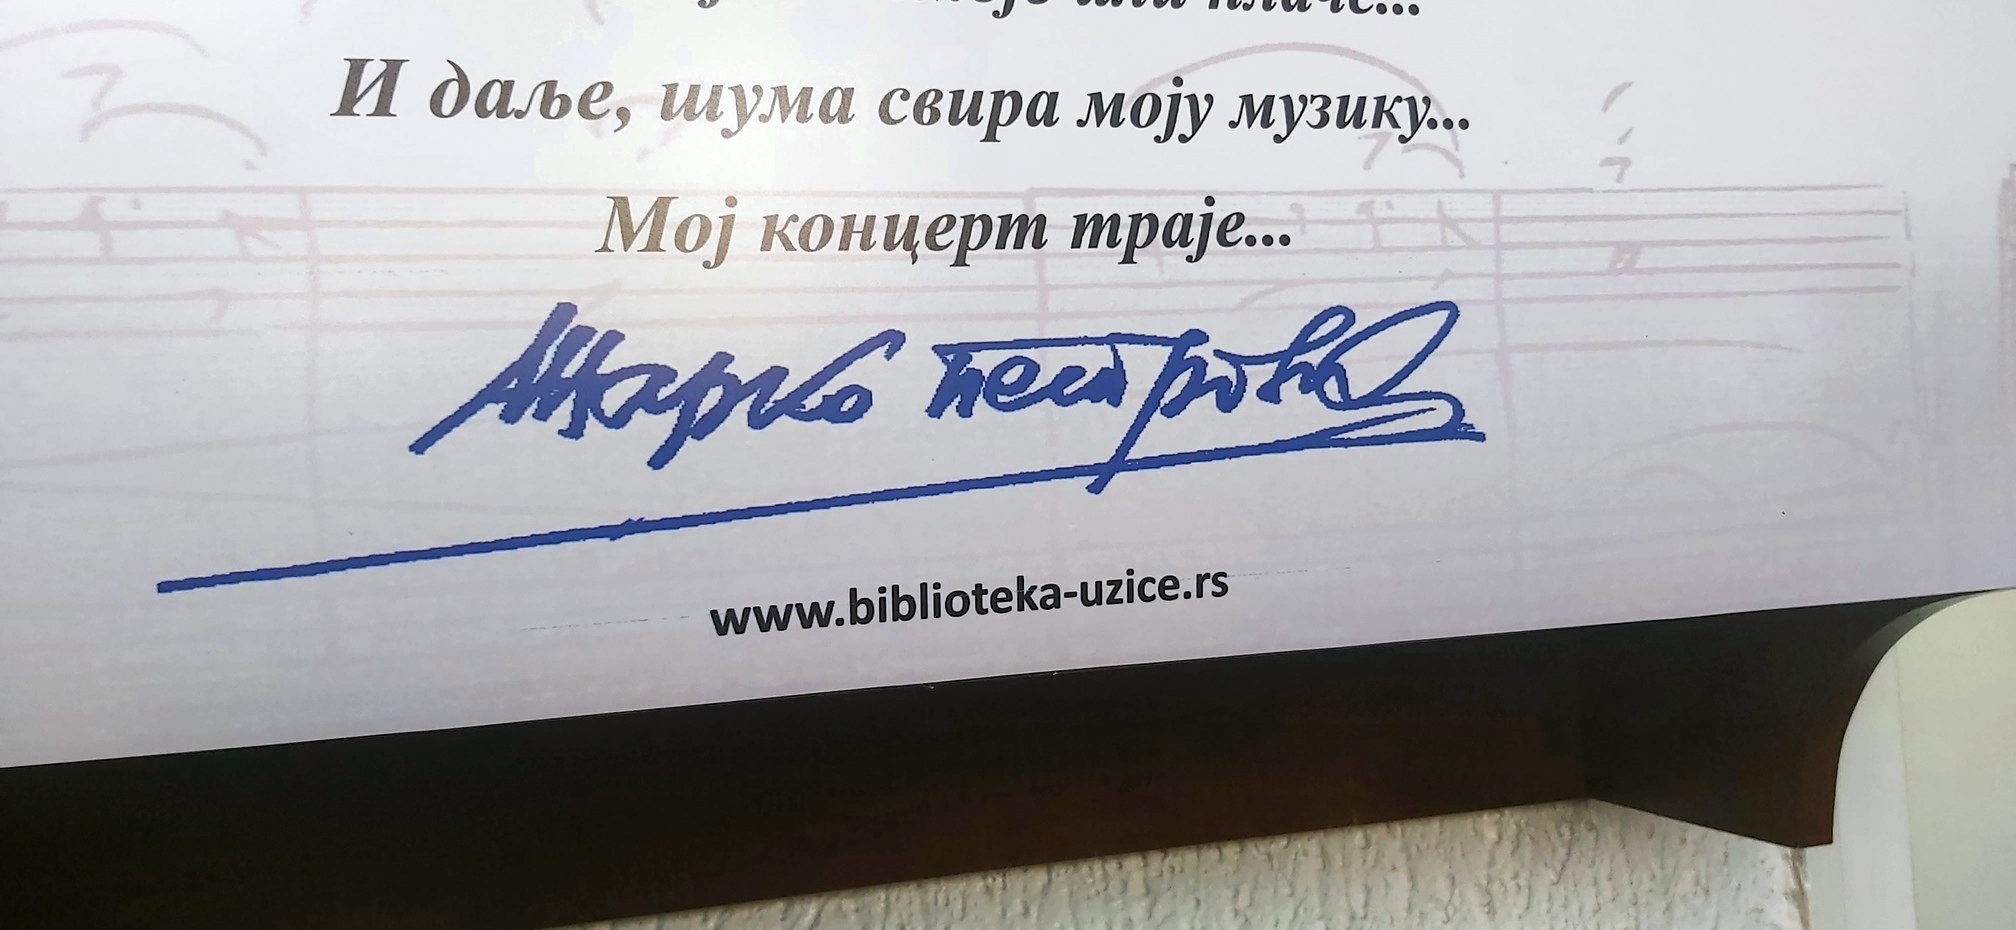 плаче...
И даље, шума свира моју музику...
Мој концерт траје...
www.biblioteka-uzice.rs